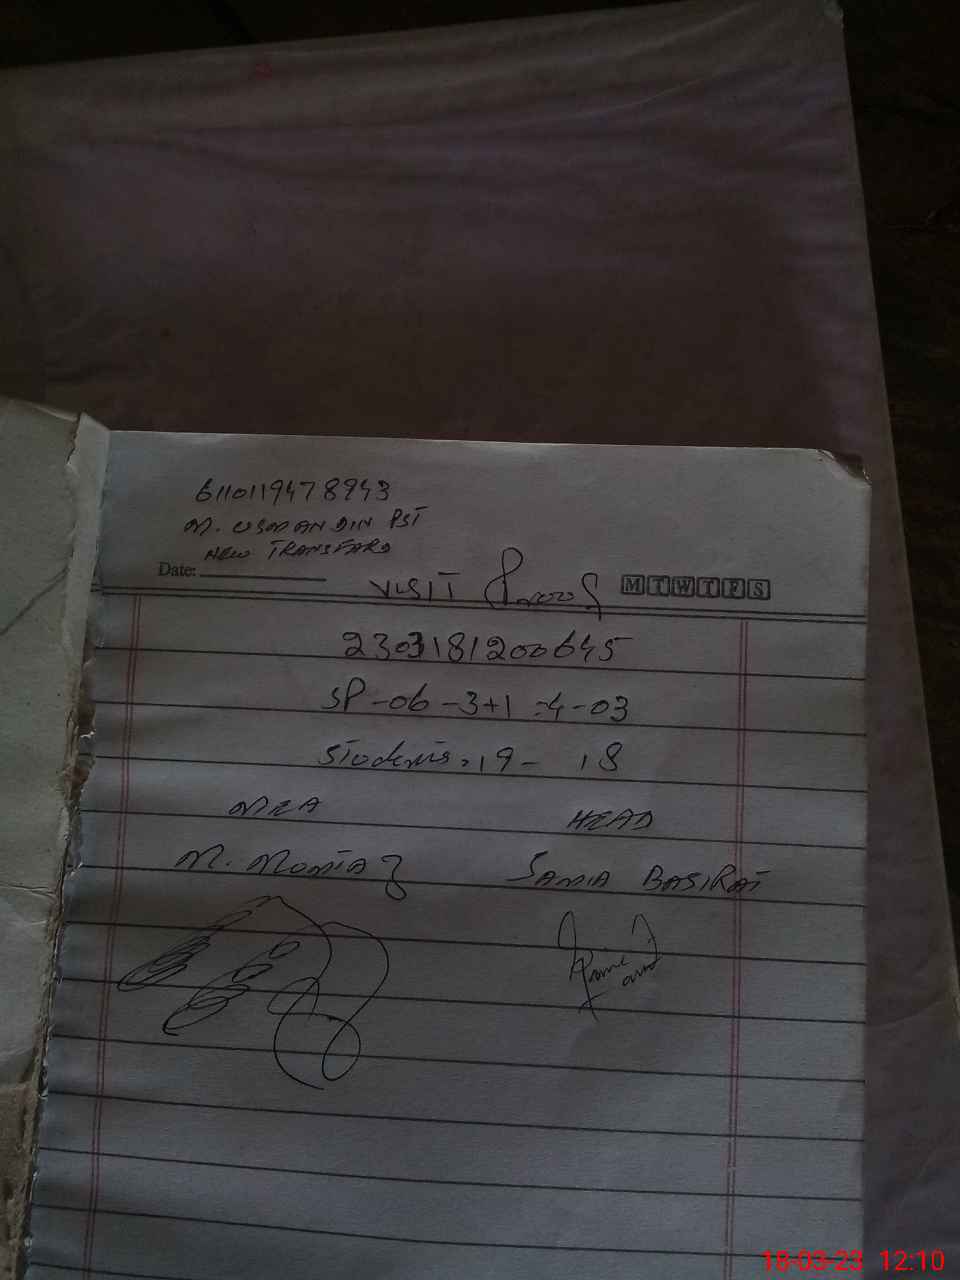 6110119478943
M. USMAN DIN PST
NEW TRANSFARD
Date:
VISIT
M T W T F S
2303181200645
SP-06-3+1=4-03
Students=19- 18
MEA HEAD
M. MOMTAZ SAMIA BASIRAT
18-03-23 12:10